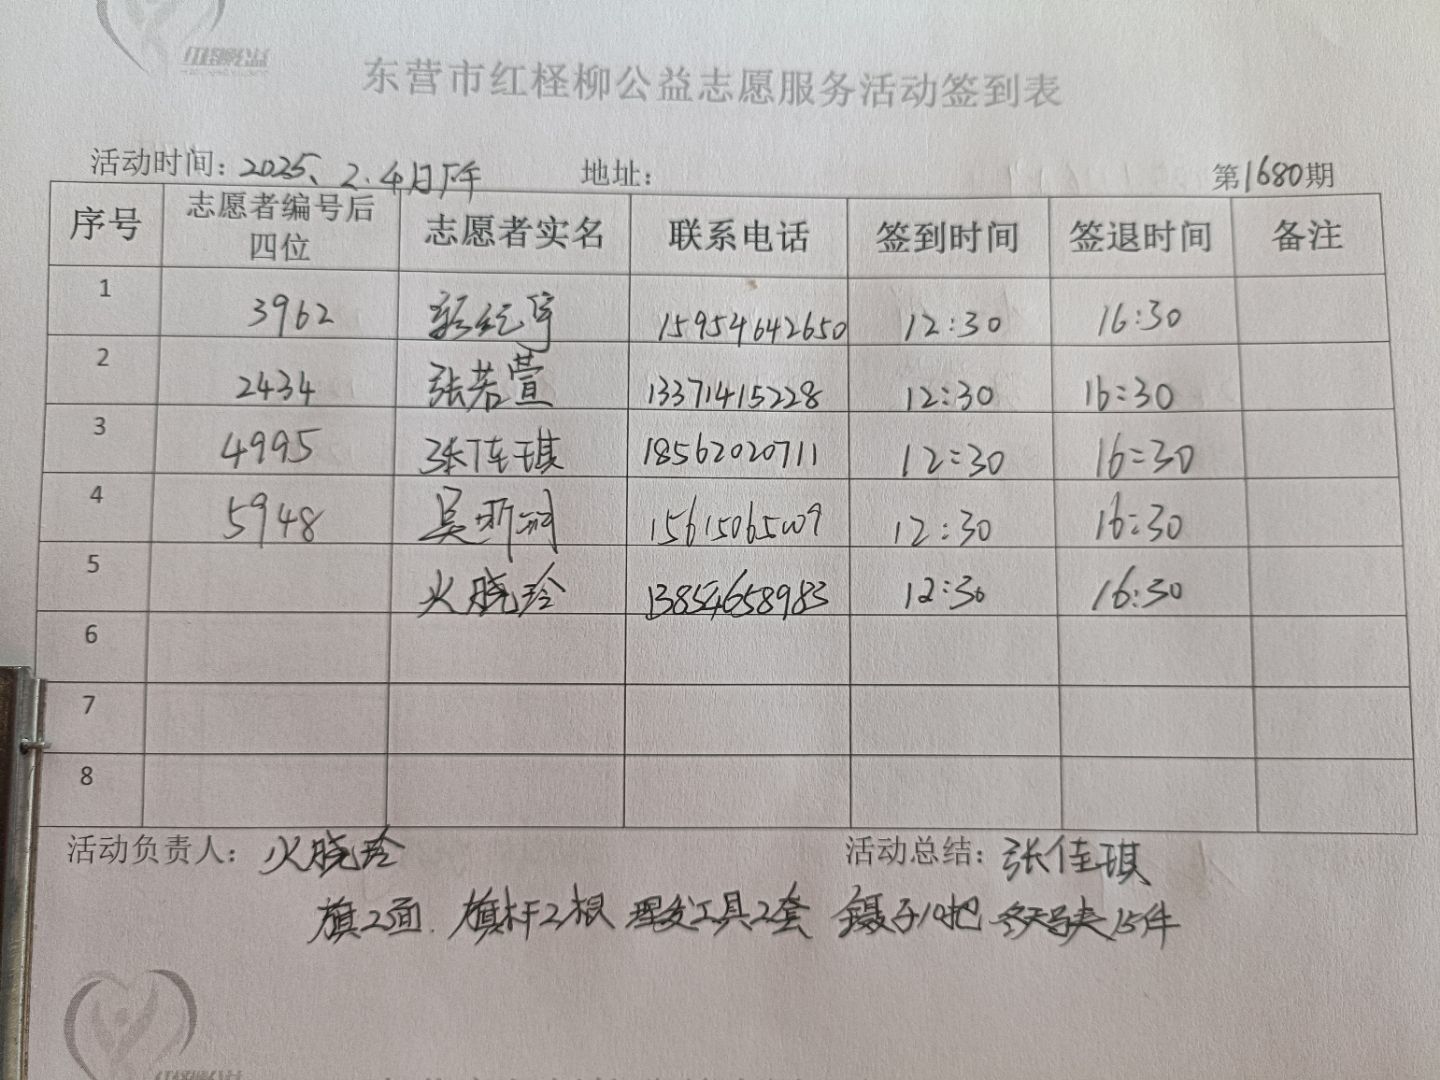 红柽柳公益
东营市红柽柳公益志愿服务活动签到表
活动时间：2025、2.4日下午 地址： 第1680期
序号 志愿者编号后四位 志愿者实名 联系电话 签到时间 签退时间 备注
1 3962 纪宇 15954642650 12:30 16:30
2 2434 张若萱 13371415228 12:30 16:30
3 4995 张佳琪 18562020711 12:30 16:30
4 5948 吴 12:30 16:30
5 火晓玲 13854658983 12:30 16:30
6
7
8
活动负责人：火晓玲 活动总结：张佳琪
旗2面. 旗杆2根 理发工具2套 镊子10把 冬天马夹15件